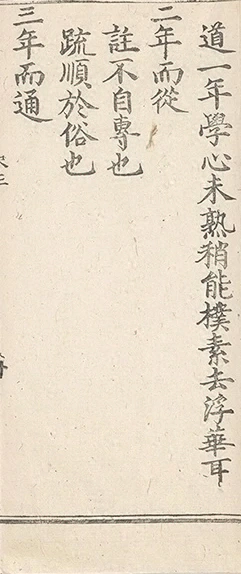 道一年學心未熟稍能樸素去浮華耳
二年而從
註不自專也
䟽順於俗也
三年而通